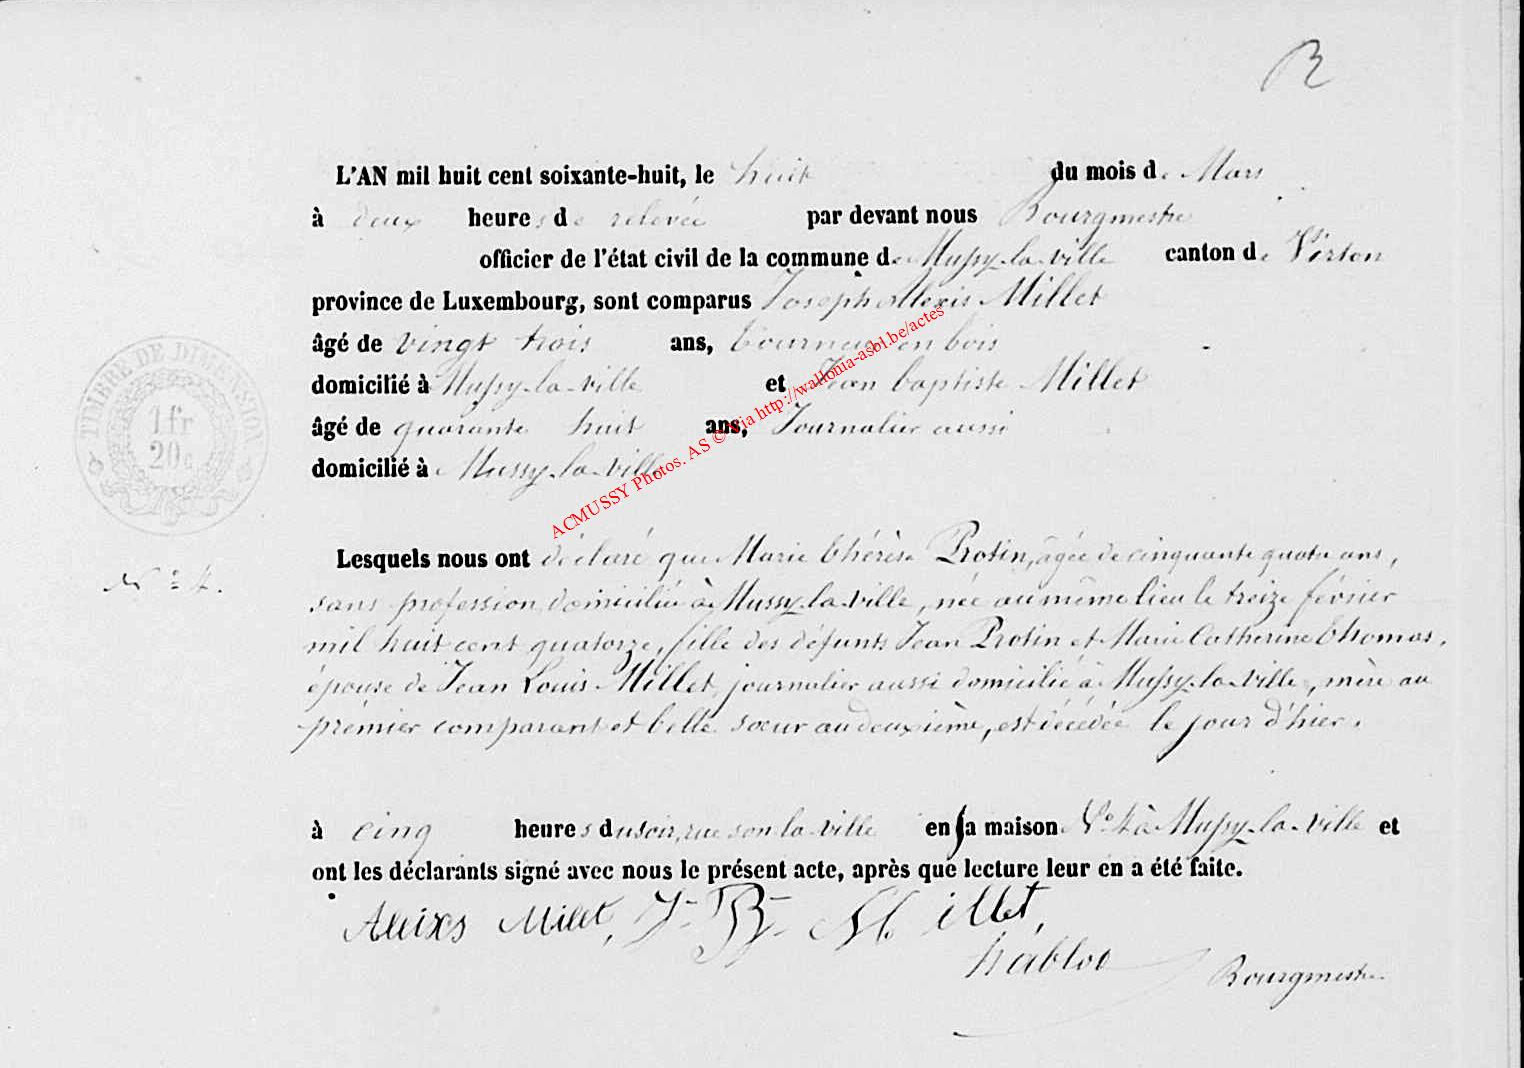 R
L'AN mil huit cent soixante-huit, le huit du mois de Mars
à deux heures de relevée par devant nous Bourgmestre
officier de l'état civil de la commune de Mussy-la-ville canton de Virton
province de Luxembourg, sont comparus Joseph Alexis Millet
âgé de vingt trois ans, tourneur en bois
domicilié à Mussy-la-ville et Jean baptiste Millet
âgé de quarante huit ans, Journalier aussi
domicilié à Mussy-la-ville
TIMBRE DE DIMENSION
1 fr
20 c
ACMUSSY Photos. AS © via http://wallonia-asbl.be/actes
Lesquels nous ont déclaré que Marie thérèse Protin, âgée de cinquante quatre ans,
N° 4.
sans profession, domiciliée à Mussy-la-ville, née au même lieu le treize février
mil huit cent quatorze, fille des défunts Jean Protin et Marie Catherine thomas,
épouse de Jean Louis Millet, journalier aussi domicilié à Mussy-la-ville, mère au
premier comparant et belle sœur au deuxième, est décédée le jour d'hier,
à cinq heures du soir, rue son la ville en sa maison N° 4 à Mussy-la-ville et
ont les déclarants signé avec nous le présent acte, après que lecture leur en a été faite.
Aleixs Milet, J- B- Millet,
habloo Bourgmestre